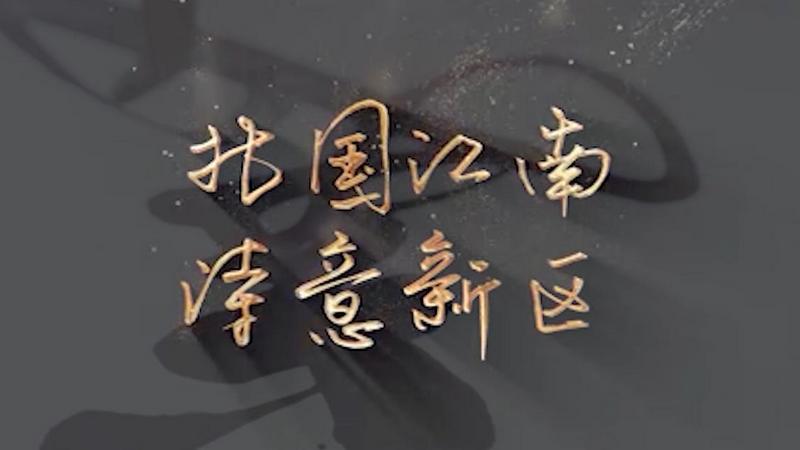 北国江南
诗意新区